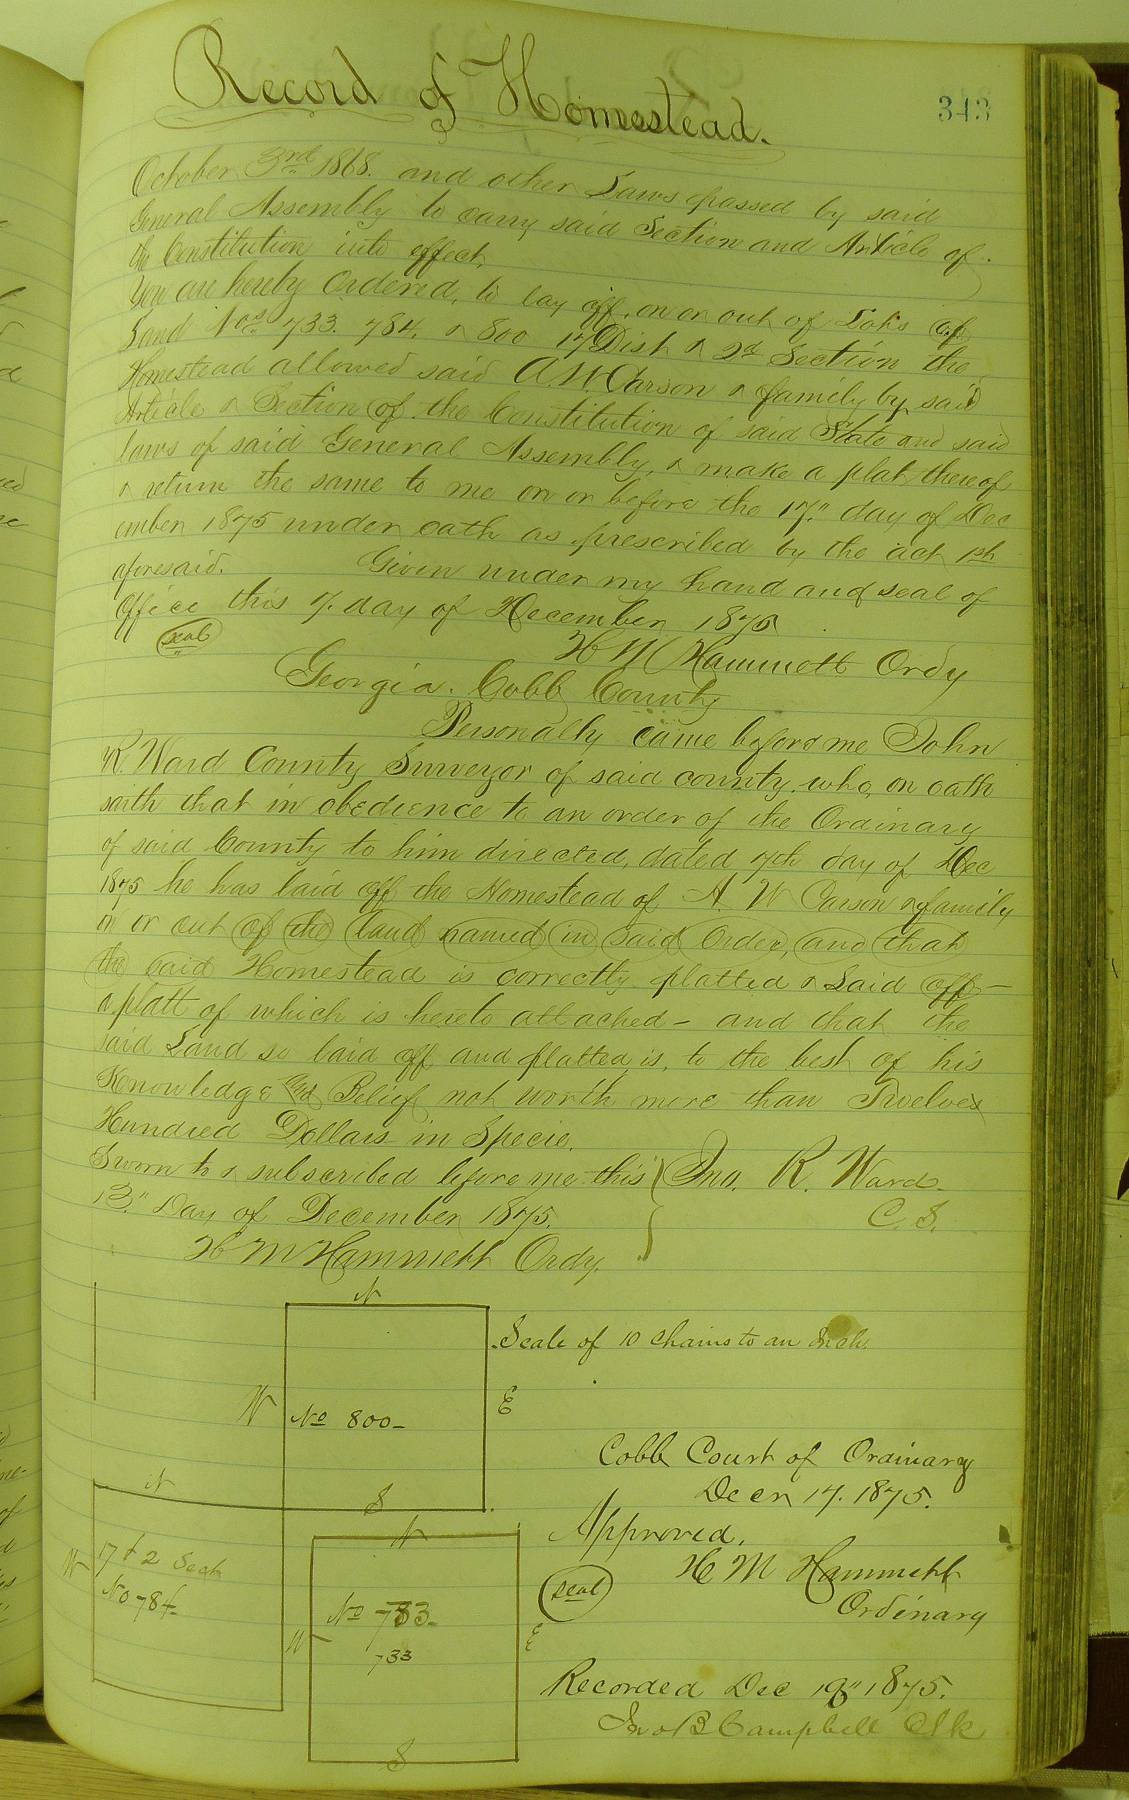 Record of Homestead.
343
October 3rd 1868. and other Laws passed by said
General Assembly to carry said Section and Article of
the Constitution into effect.
You are hereby Ordered, to lay off, on or out of Lots of
Land Nos 733. 784. & 800 17 Dist & 2d Section the
Homestead allowed said A. W. Carson & family by said
Article & Section of the Constitution of said State and said
laws of said General Assembly, & make a plat thereof
& return the same to me on or before the 17" day of Dec
ember 1875 under oath as prescribed by the act 1st
aforesaid. Given under my hand and seal of
Office this 7. day of December 1875
seal
H M Hammett Ordy
Georgia. Cobb County
Personally came before me John
R. Ward County Surveyor of said county. who, on oath
saith that in obedience to an order of the Ordinary
of said County to him directed, dated 7th day of Dec
1875 he has laid off the Homestead of A. W Carson & family
on or out of the land named in said Order, and that
the said Homestead is correctly platted & Laid off -
a platt of which is hereto attached - and that the
said Land so laid off and platted, is, to the best of his
Knowledge and Belief not worth more than Twelve
Hundred Dollars in Specie.
Sworn to & subscribed before me this
Jno. R. Ward.
13." Day of December 1875.
C. S.
H M Hammett Ordy.
N
Scale of 10 Chains to an Inch.
W
No 800-
E
S
Cobb Court of Ordinary
Decr 17. 1875.
Approved.
H M Hammett
seal
Ordinary
N
W
17 & 2 Sect
No 784
N
W
No 733-
733
E
S
Recorded Dec 19" 1875.
Jno B Campbell Clk